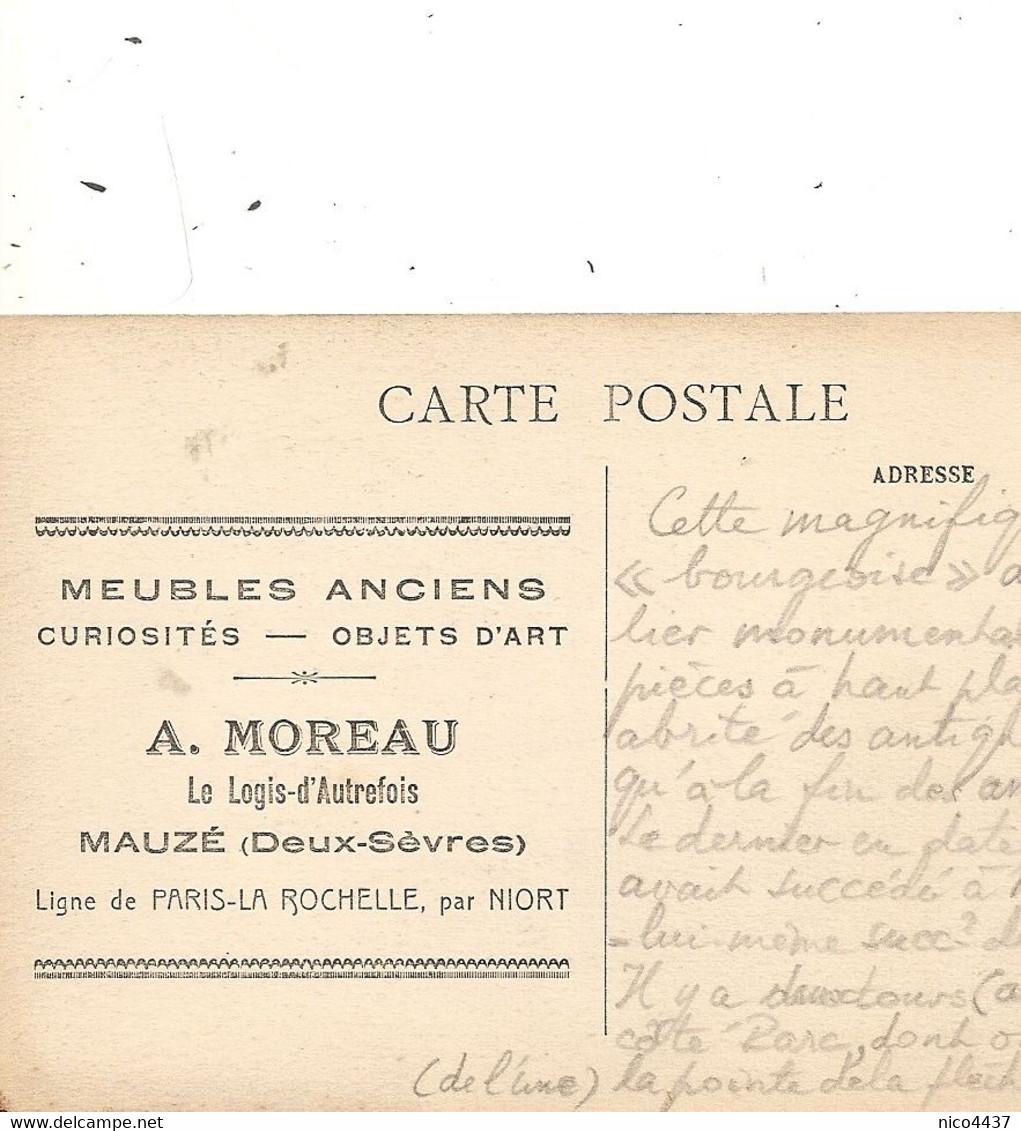 CARTE POSTALE
ADRESSE
MEUBLES ANCIENS
CURIOSITÉS — OBJETS D'ART
A. MOREAU
Le Logis-d'Autrefois
MAUZÉ (Deux-Sèvres)
Ligne de PARIS-LA ROCHELLE, par NIORT
Cette magnifiq
« bourgeoise » a
lier monumental
pièces à haut pla
abrité des
qu'à la fin des an
Le dernier en date
avait succédé à
-lui-même succ? d
Il y a deux tours (a
côté Parc, dont o
(de l'une) la pointe de la flèch
nico4437